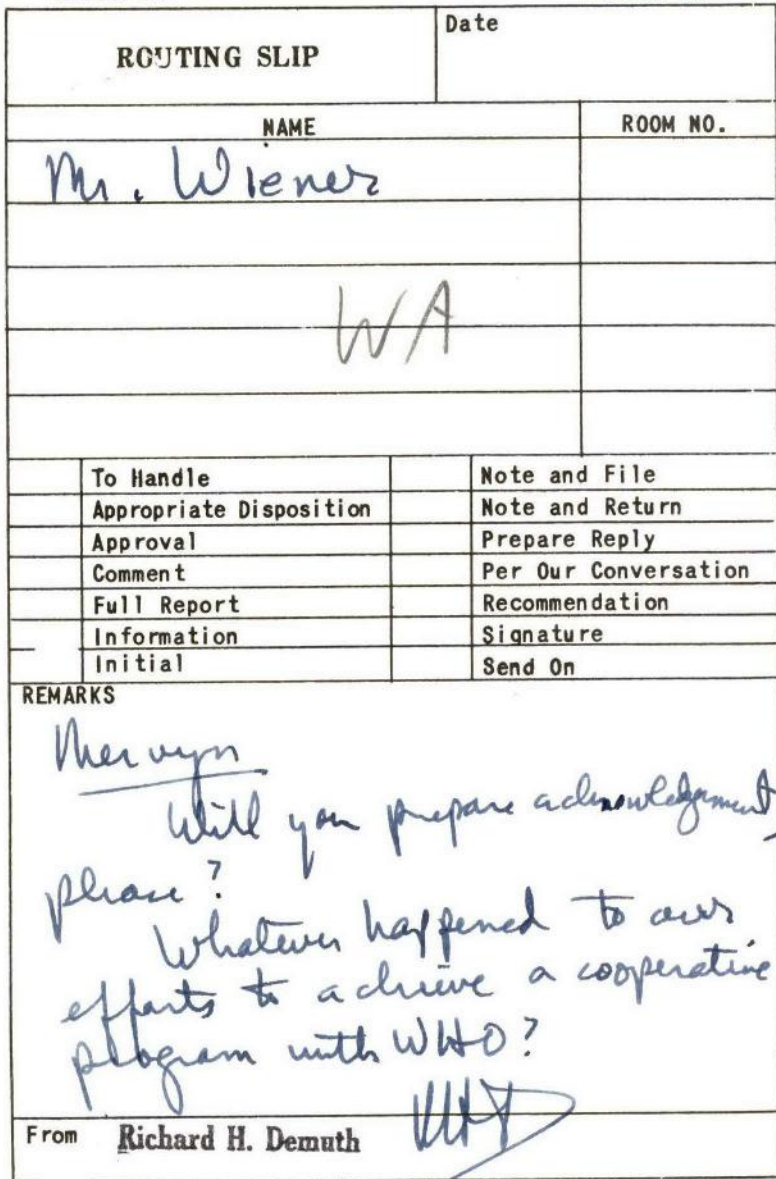 ROUTING SLIP
Date
NAME
ROOM NO.
Mr. Wiener
WA
To Handle
Note and File
Appropriate Disposition
Note and Return
Approval
Prepare Reply
Comment
Per Our Conversation
Full Report
Recommendation
Information
Signature
Initial
Send On
REMARKS
Mervyn
Will you prepare acknowledgment,
please?
Whatever happened to our
efforts to achieve a cooperative
program with WHO?
RHD
From Richard H. Demuth